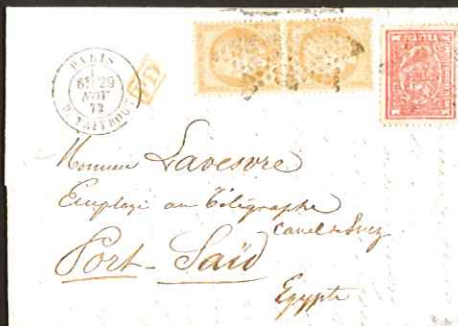 PARIS
6E 29
AOUT
72
R. TAITBOUT
PD
Monsieur Lavesvre
Employé au Télégraphe
Canal de Suez
Port-Saïd
Egypte